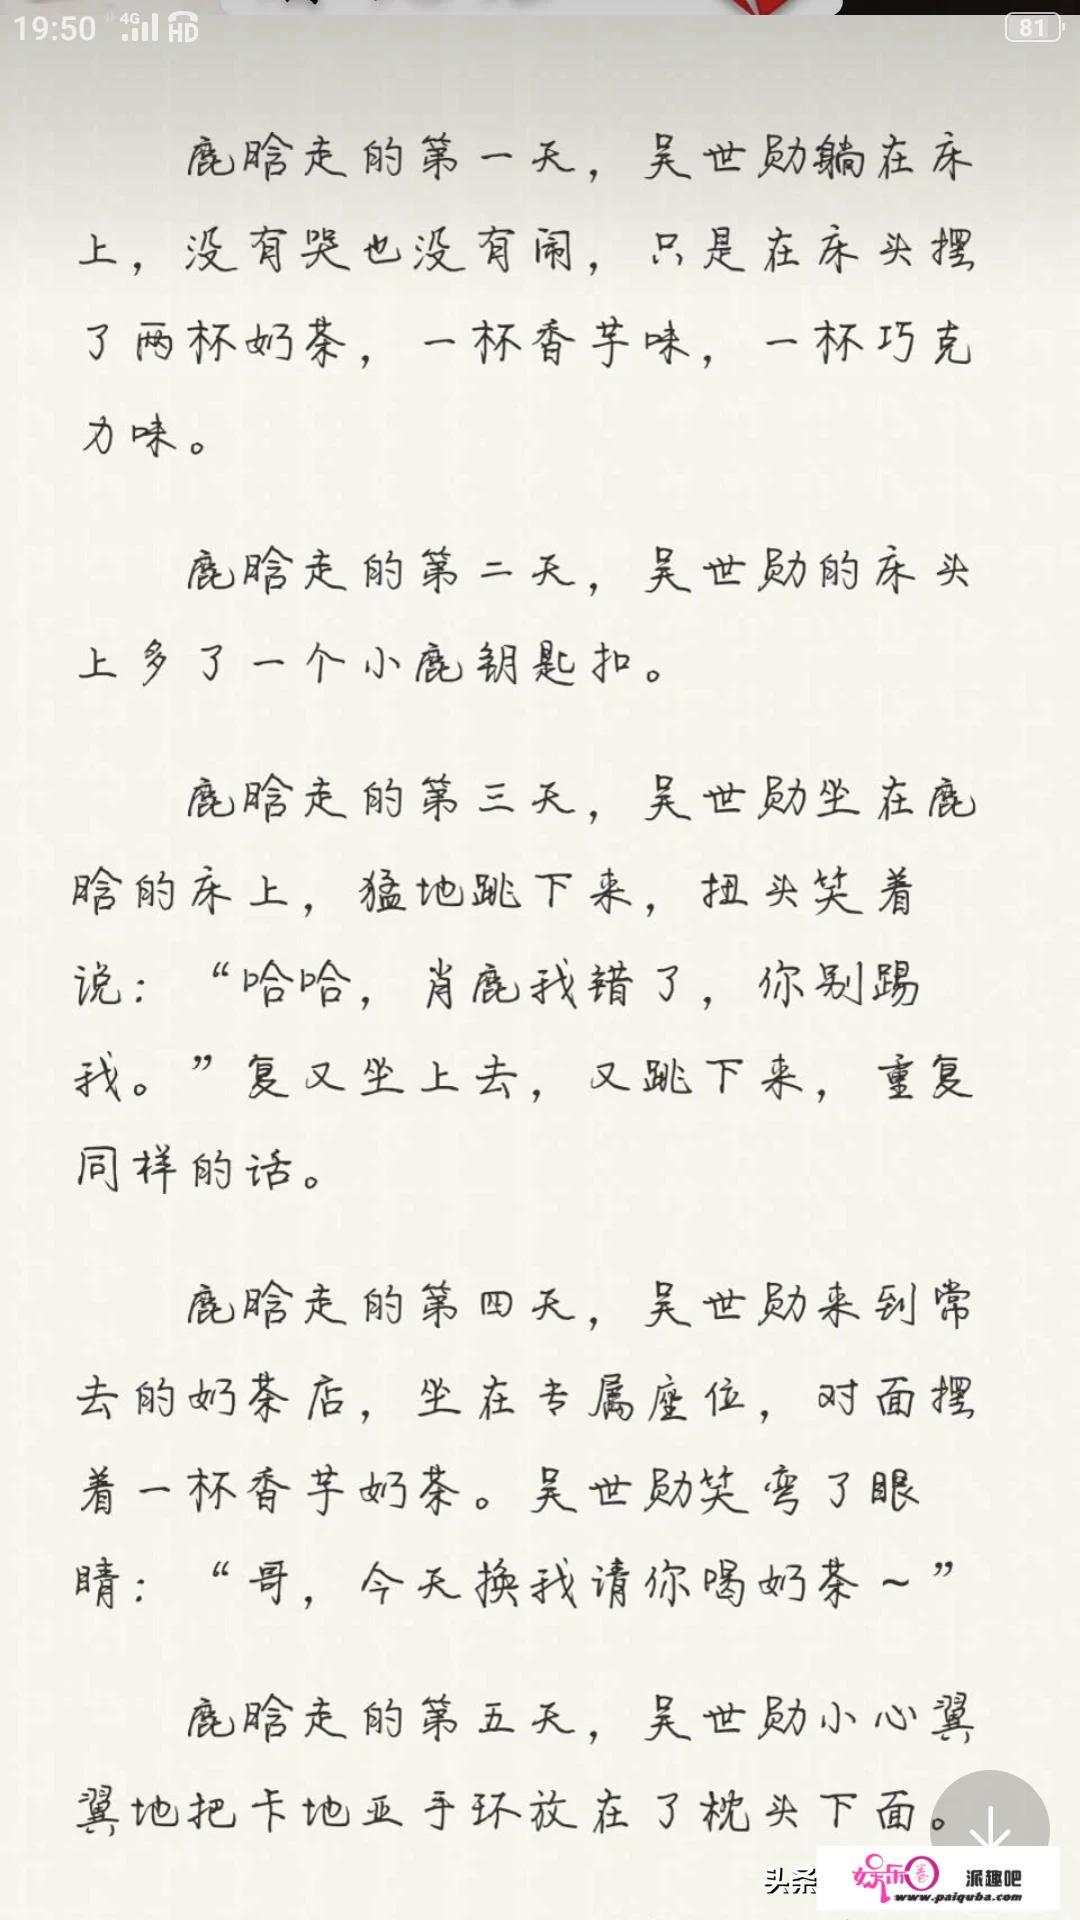 19:50 4G HD 81
鹿晗走的第一天，吴世勋躺在床
上，没有哭也没有闹，只是在床头摆
了两杯奶茶，一杯香芋味，一杯巧克
力味。
鹿晗走的第二天，吴世勋的床头
上多了一个小鹿钥匙扣。
鹿晗走的第三天，吴世勋坐在鹿
晗的床上，猛地跳下来，扭头笑着
说：“哈哈，肖鹿我错了，你别踢
我。”复又坐上去，又跳下来，重复
同样的话。
鹿晗走的第四天，吴世勋来到常
去的奶茶店，坐在专属座位，对面摆
着一杯香芋奶茶。吴世勋笑弯了眼
睛：“哥，今天换我请你喝奶茶~”
鹿晗走的第五天，吴世勋小心翼
翼地把卡地亚手环放在了枕头下面。
头条
娱乐圈 派趣吧
www.paiquba.com